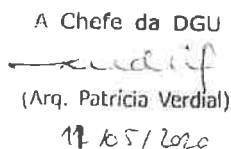 A Chefe da DGU
(Arq. Patrícia Verdial)
11/05/2020